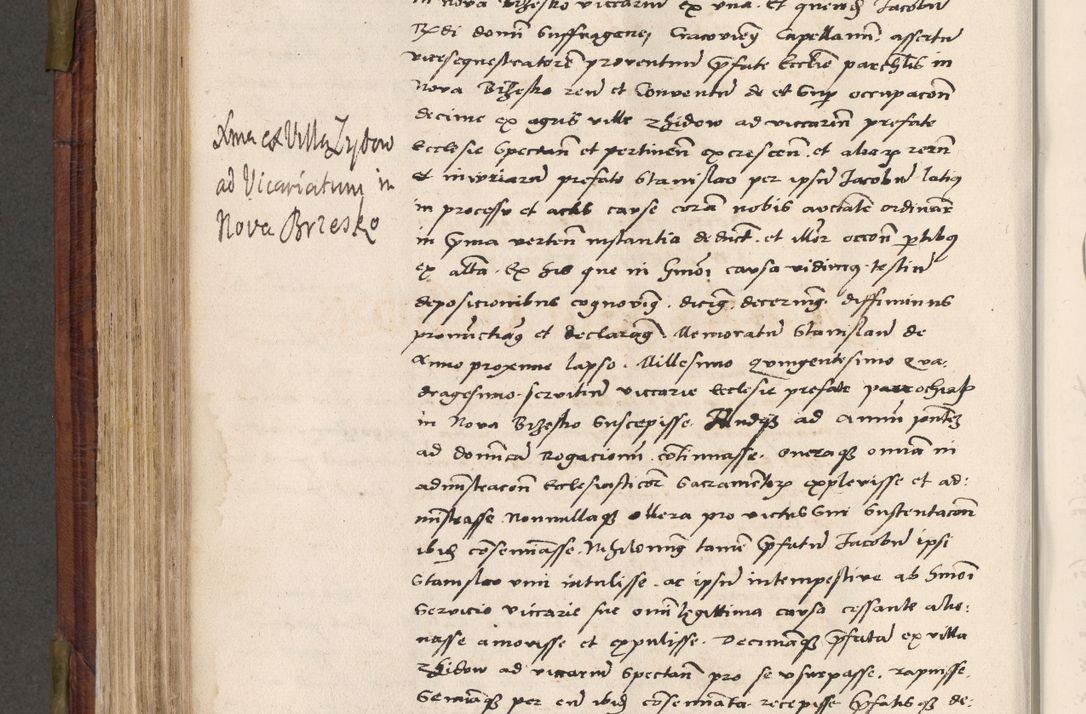 in Nova Brzesko viccarium ex una. et quendam Jacobum
Rdi domini Suffraganei Cracovien Capellanum. assertum
vicesequestratorem proventuum pfate Ecclie parchlis in
Nova Brzesko reum et Conventum de et sup occupaconem
decime ex agris ville Zhidow ad viccariam prefate
Ecclesie Spectan et pertinen excrescen. et aliarum rerum
et iniuriarum prefato Stanislao per ipsum Jacobum latis
in processu et actis cause coram nobis auctate ordinaria
in prima verten instantia deduct. et illor occon ptibus
ex alta. Ex his que in hmoi causa vidimus testium
deposicionibus cognovimus. dicimus. decernimus. diffinimus
pronunctiamus et declaramus. Memoratum Stanislaum de
Anno proxime lapso. Millesimo Quingentesimo Qua-
dragesimo. servitium viccarie Ecclesie prefate parochialis
in Nova Brzesko Suscepisse. Illudque ad Annum pntem
ad dominicam Rogacionum. cotinuasse. Oneraque omnia in
administracon Ecclesiasticor Sacramentor explevisse et ad-
ministrasse. Nonnullaque Olera pro victus sui Sustentacon
ibidem conseminasse. Nihilominus tamen pfatum Jacobum ipsi
Stanislao vim intulisse. ac ipsum intempestive ab hmoi
Servicio viccarie sue omni legittima causa cessante alie-
nasse amovisse et expulisse. Decimamque pfatam ex villa
Zhidow ad viccarium Spectan pro se usurpasse. rapuisse.
Seminaque per eum ibidem conseminata. recepisse pfatisque de-
Xma ex Villa Zydow
ad Vicariatum in
Nova Brzesko